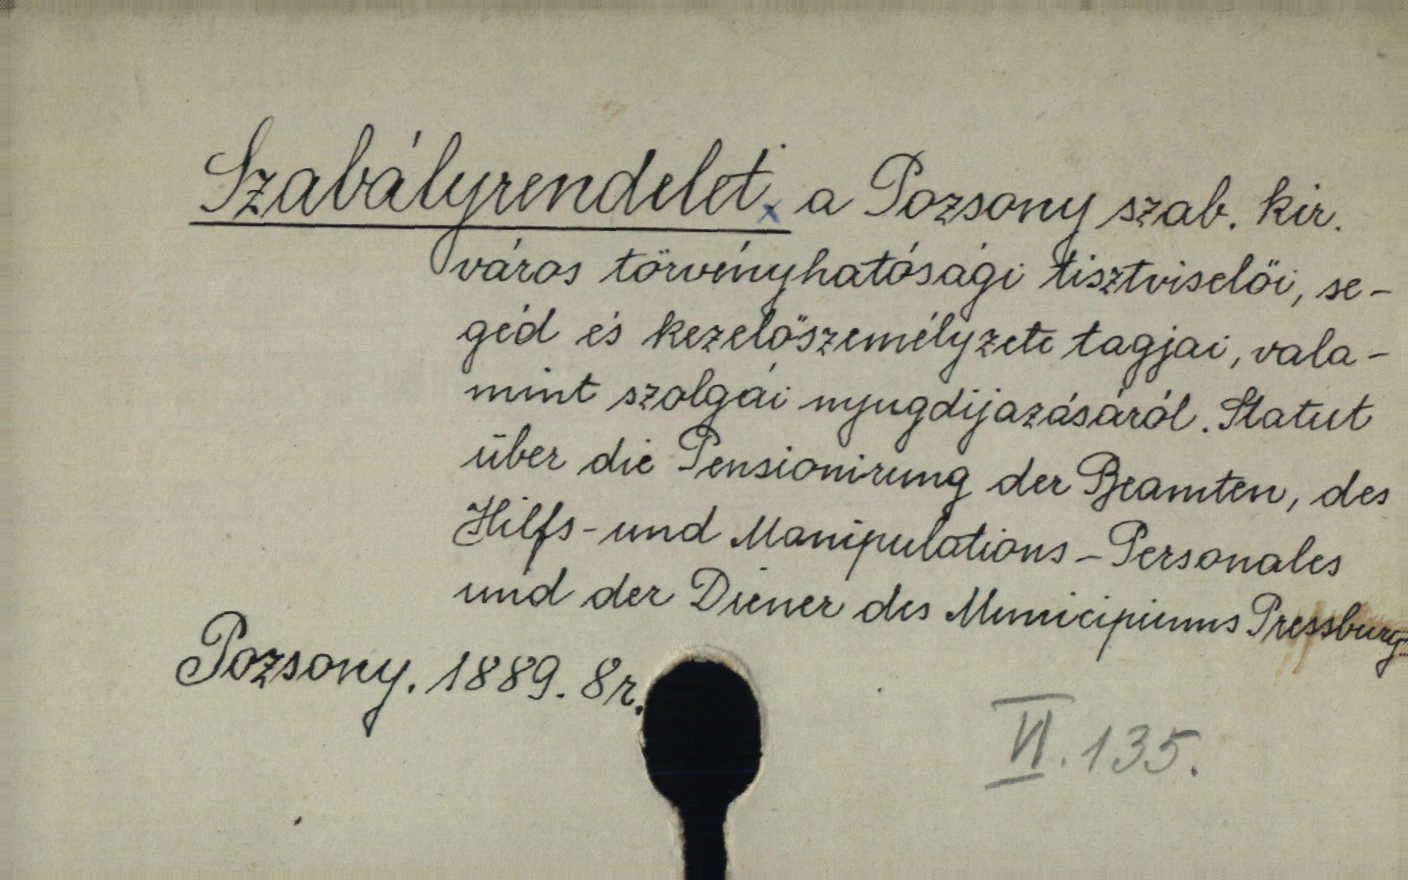 Szabályrendelet x a Pozsony szab. kir.
város törvényhatósági tisztviselői, se-
géd és kezelőszemélyzete tagjai, vala-
mint szolgái nyugdijazásáról. Statut
über die Pensionirung der Beamten, des
Hilfs- und Manipulations-Personales
und der Diener des Municipiums Pressburg.
Pozsony. 1889. 8r.
VI. 135.